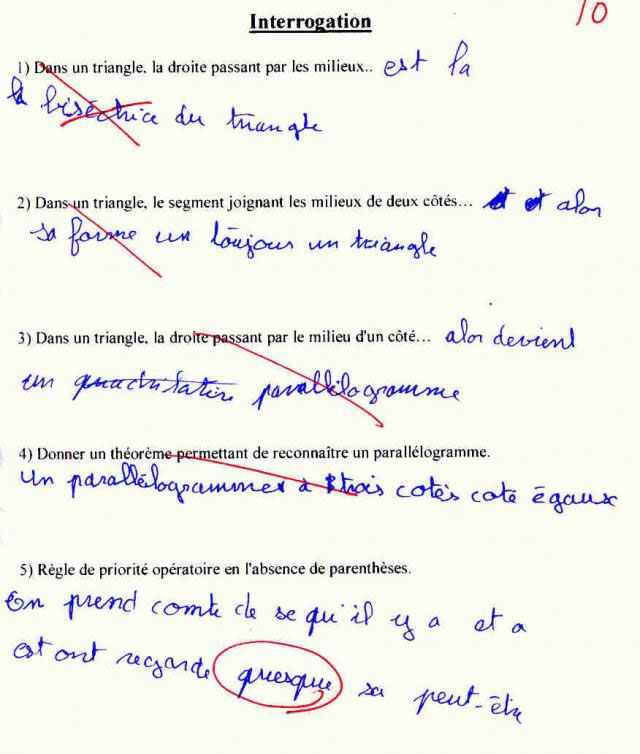 Interrogation
10
1) Dans un triangle, la droite passant par les milieux.. est la
la biséctrice du triangle
2) Dans un triangle, le segment joignant les milieux de deux côtés... et alor
sa forme un toujour un triangle
3) Dans un triangle, la droite passant par le milieu d'un côté... alor devient
un parallèlogramme
4) Donner un théorème permettant de reconnaître un parallélogramme.
Un parallèlogrammes à trois cotés coté égaux
5) Règle de priorité opératoire en l'absence de parenthèses.
On prend comte de se qu'il y a et a
est ont regarde quesque sa peut-être